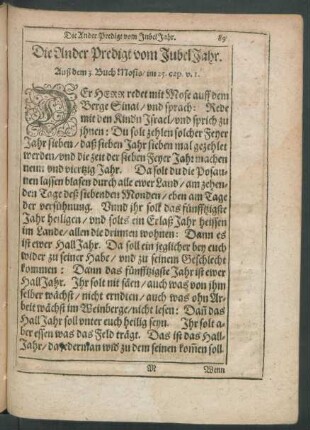 Die Ander Predigt vom Jubel Jahr. 89
Die Ander Predigt vom Jubel Jahr.
Auß dem 3. Buch Mosis/ im 25. cap. v. 1.
DEr HERR redet mit Mose auff dem
Berge Sinai/ vnd sprach: Rede
mit den Kindn Israel/ vnd sprich zu
jhnen: Du solt zehlen solcher Feyer
Jahr sieben/ daß sieben Jahr sieben mal gezehlet
werden/ vnd die zeit der sieben Feyer Jahr machen
neun vnd viertzig Jahr. Da solt du die Posau-
nen lassen blasen durch alle ewer Land/ am zehen-
den Tage deß siebenden Monden/ eben am Tage
der versühnung. Vnnd ihr solt das fünfftzigste
Jahr heiligen/ vnd solts ein Erlaß Jahr heissen
im Lande/ allen die drinnen wohnen: Dann es
ist ewer Hall Jahr. Da soll ein jeglicher bey euch
wider zu seiner Habe/ vnd zu seinem Geschlecht
kommen: Dann das fünfftzigste Jahr ist ewer
Hall Jahr. Ihr solt nit säen/ auch was von jhm
selber wächst/ nicht erndten/ auch was ohn Ar-
beit wächst im Weinberge/ nicht lesen: Dañ das
Hall Jahr soll vnter euch heilig seyn. Ihr solt a-
ber essen was das Feld trägt. Das ist das Hall-
Jahr/ da jederman wid zu dem seinen kom̃en soll.
M Wenn